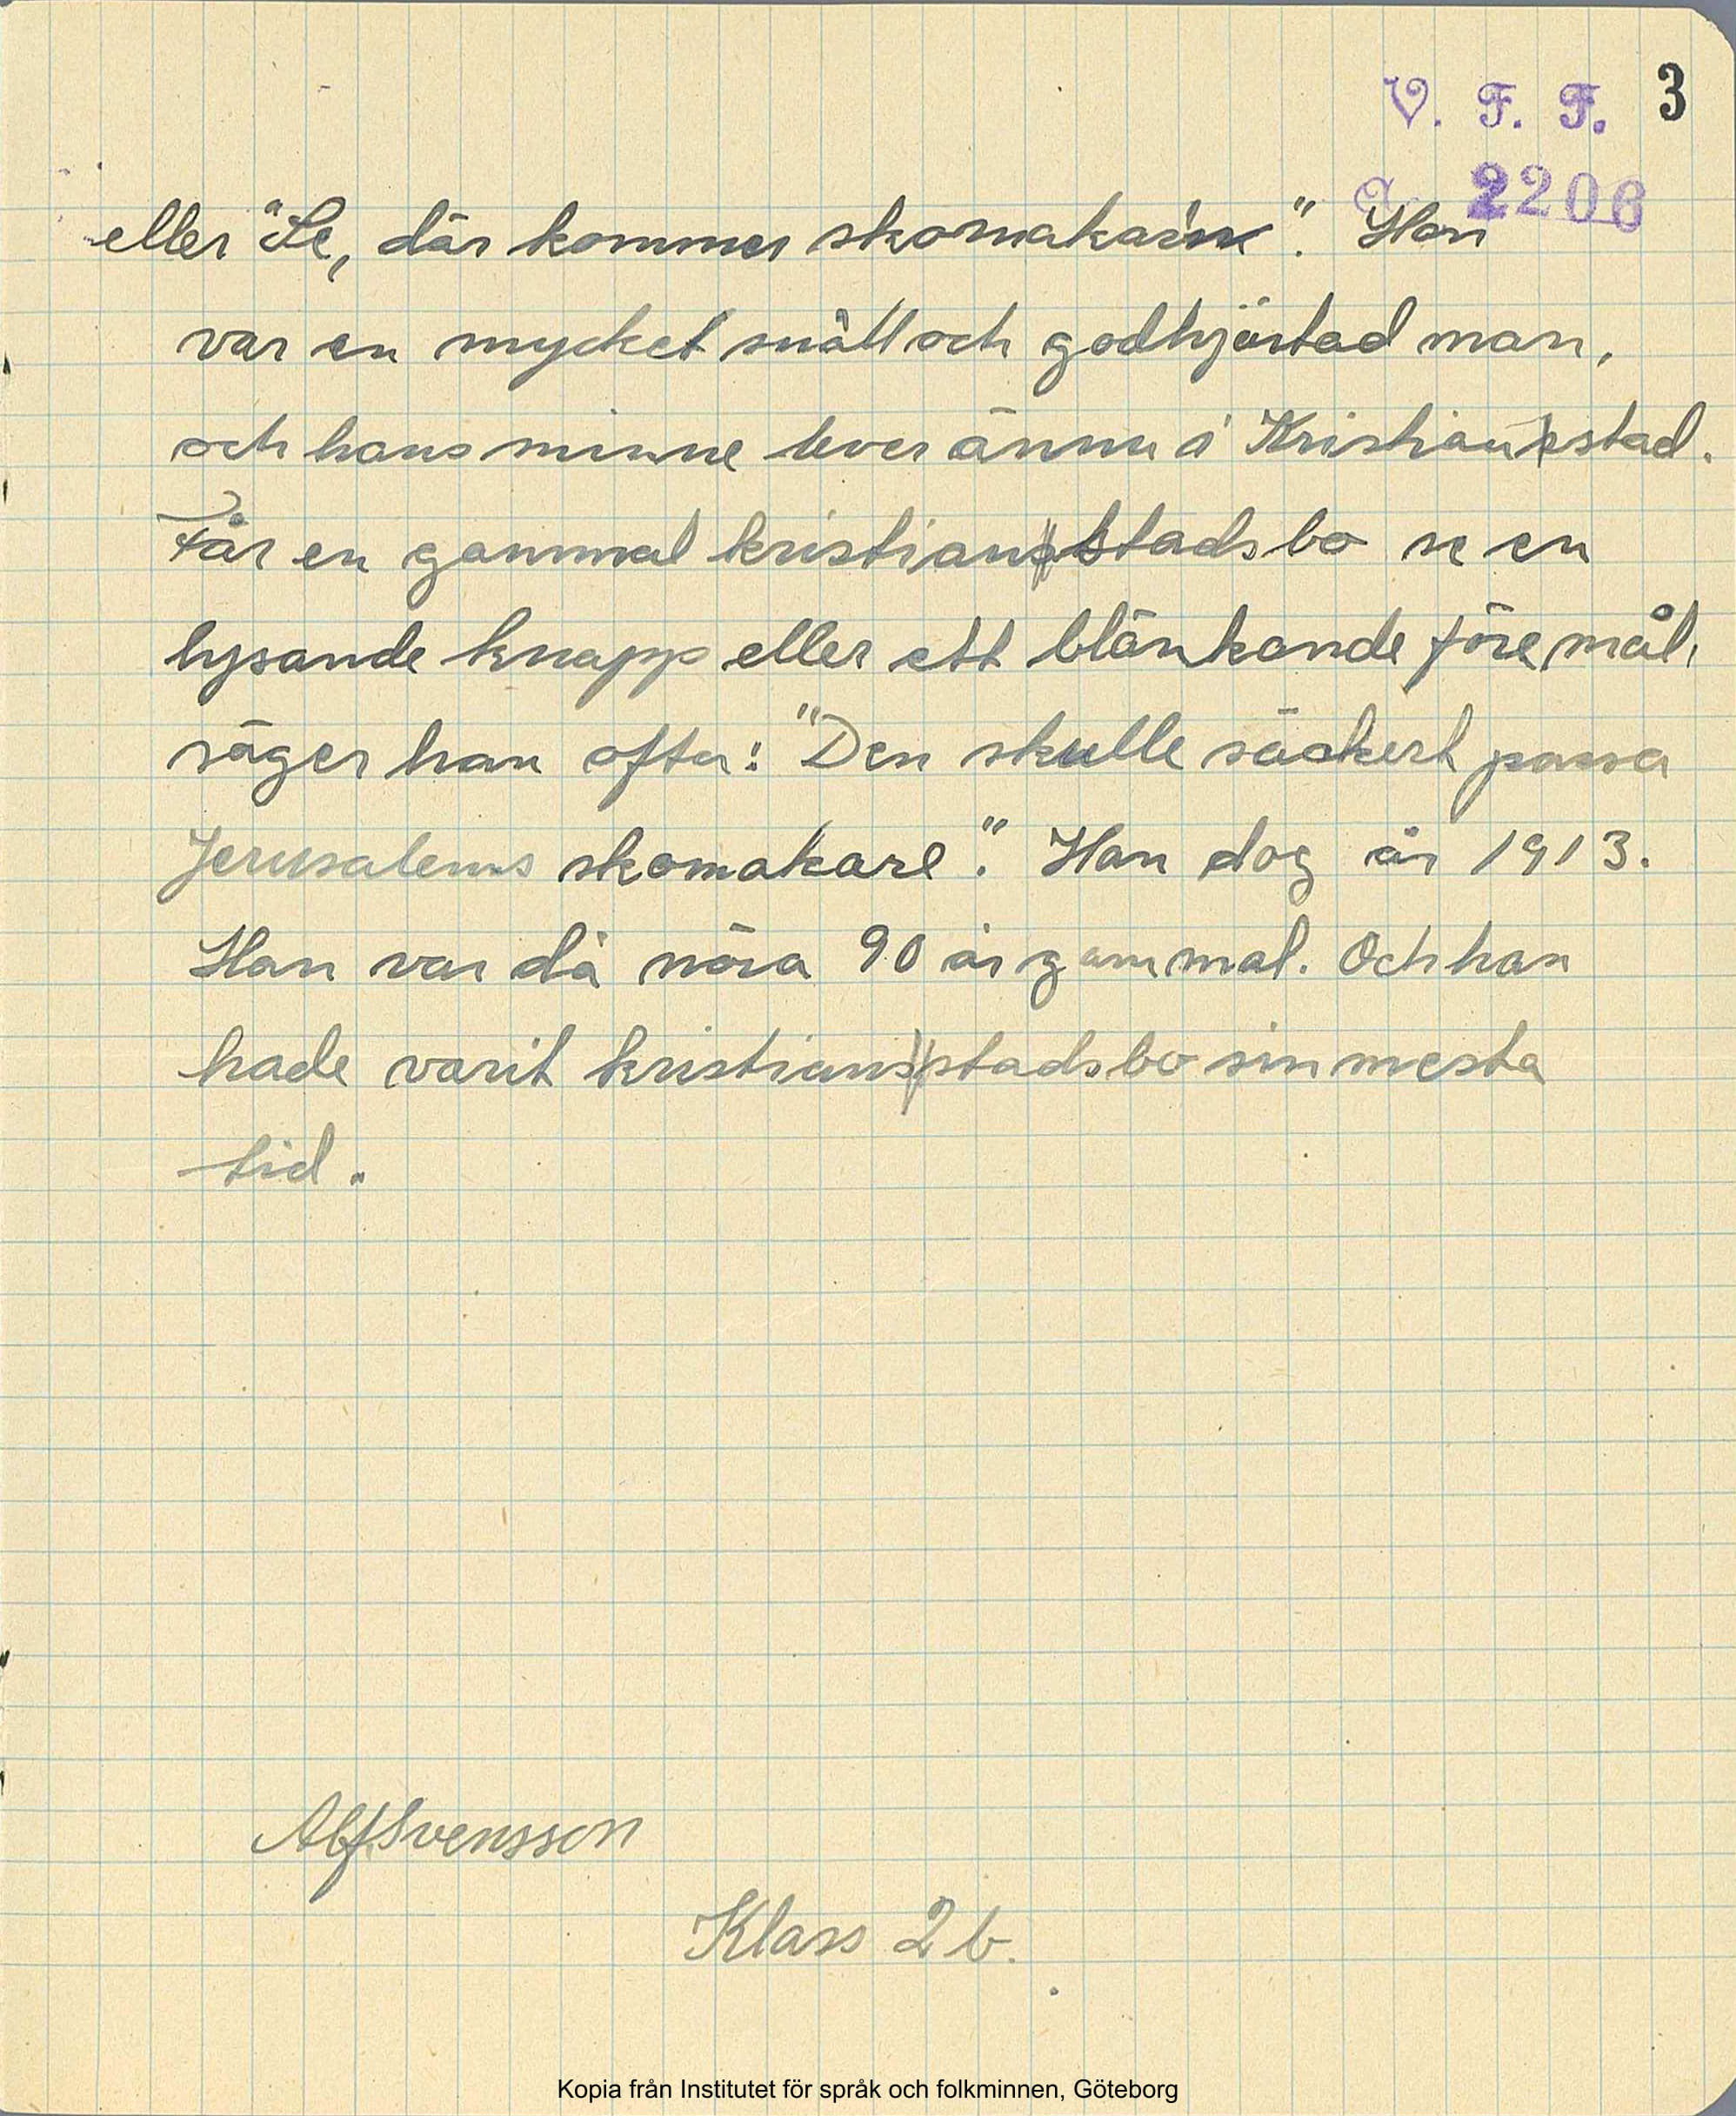 V. F. F. 3
a. 2206
eller "Se, där kommer skomakar'n". Han
var en mycket snäll och godhjärtad man,
och hans minne lever ännu i Kristianstad.
Får en gammal kristianstadsbo se en
lysande knapp eller ett blänkande föremål,
säger han ofta: "Den skulle säckert passa
Jerusalems skomakare". Han dog år 1913.
Han var då nära 90 år gammal. Och han
hade varit kristianstadsbo sin mesta
tid.
Alf Svensson
Klass 2 b.
Kopia från Institutet för språk och folkminnen, Göteborg